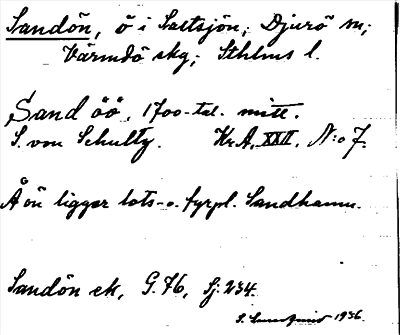 Sandön, ö i Saltsjön; Djurö sn;
Värmdö skg; Sthlms l.
Sand öö, 1700-tal. mitt.
S. von Schultz. Kr.A. XXII, N:o 7.
Å ön ligger lots- o. fyrpl. Sandhamn.
Sandön ek, G. 76, Sj: 234.
1936.